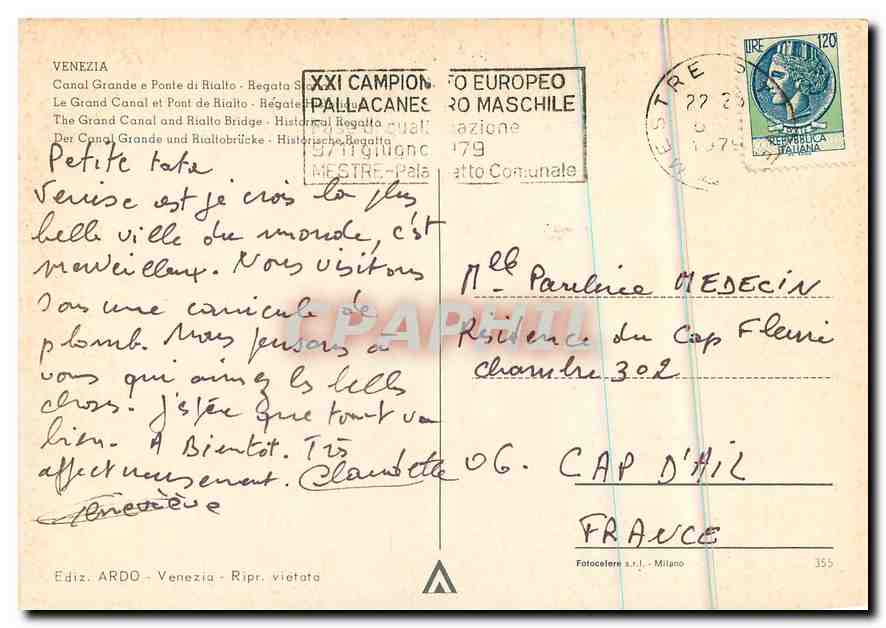 VENEZIA
Canal Grande e Ponte di Rialto - Regata
Le Grand Canal et Pont de Rialto -
The Grand Canal and Rialto Bridge - Historical Regatta
Der Canal Grande und Rialtobrücke - Historische Regatta
XXI CAMPION TO EUROPEO
PALLACANES RO MASCHILE
azione
9/11 giugno 979
MESTRE-Pala etto Comunale
MESTRE
22 23
6
1979
LIRE 120
REPVBBLICA
ITALIANA
Petite tata
Venise est je crois la plus
belle ville du monde, c'est
merveilleux. Nous visitons
sous une canicule de
plomb. Nous pensons à
vous qui aimez les belles
choses. J'espère que tout va
bien. A Bientôt. Très
affectueusement. Claudette
Geneviève
Mlle Pauline MEDECIN
Résidence du Cap Fleuri
chambre 302
06. CAP D'AIL
FRANCE
CPAPHIL
Ediz. ARDO - Venezia - Ripr. vietata
Fotocelere s.r.l. - Milano
355